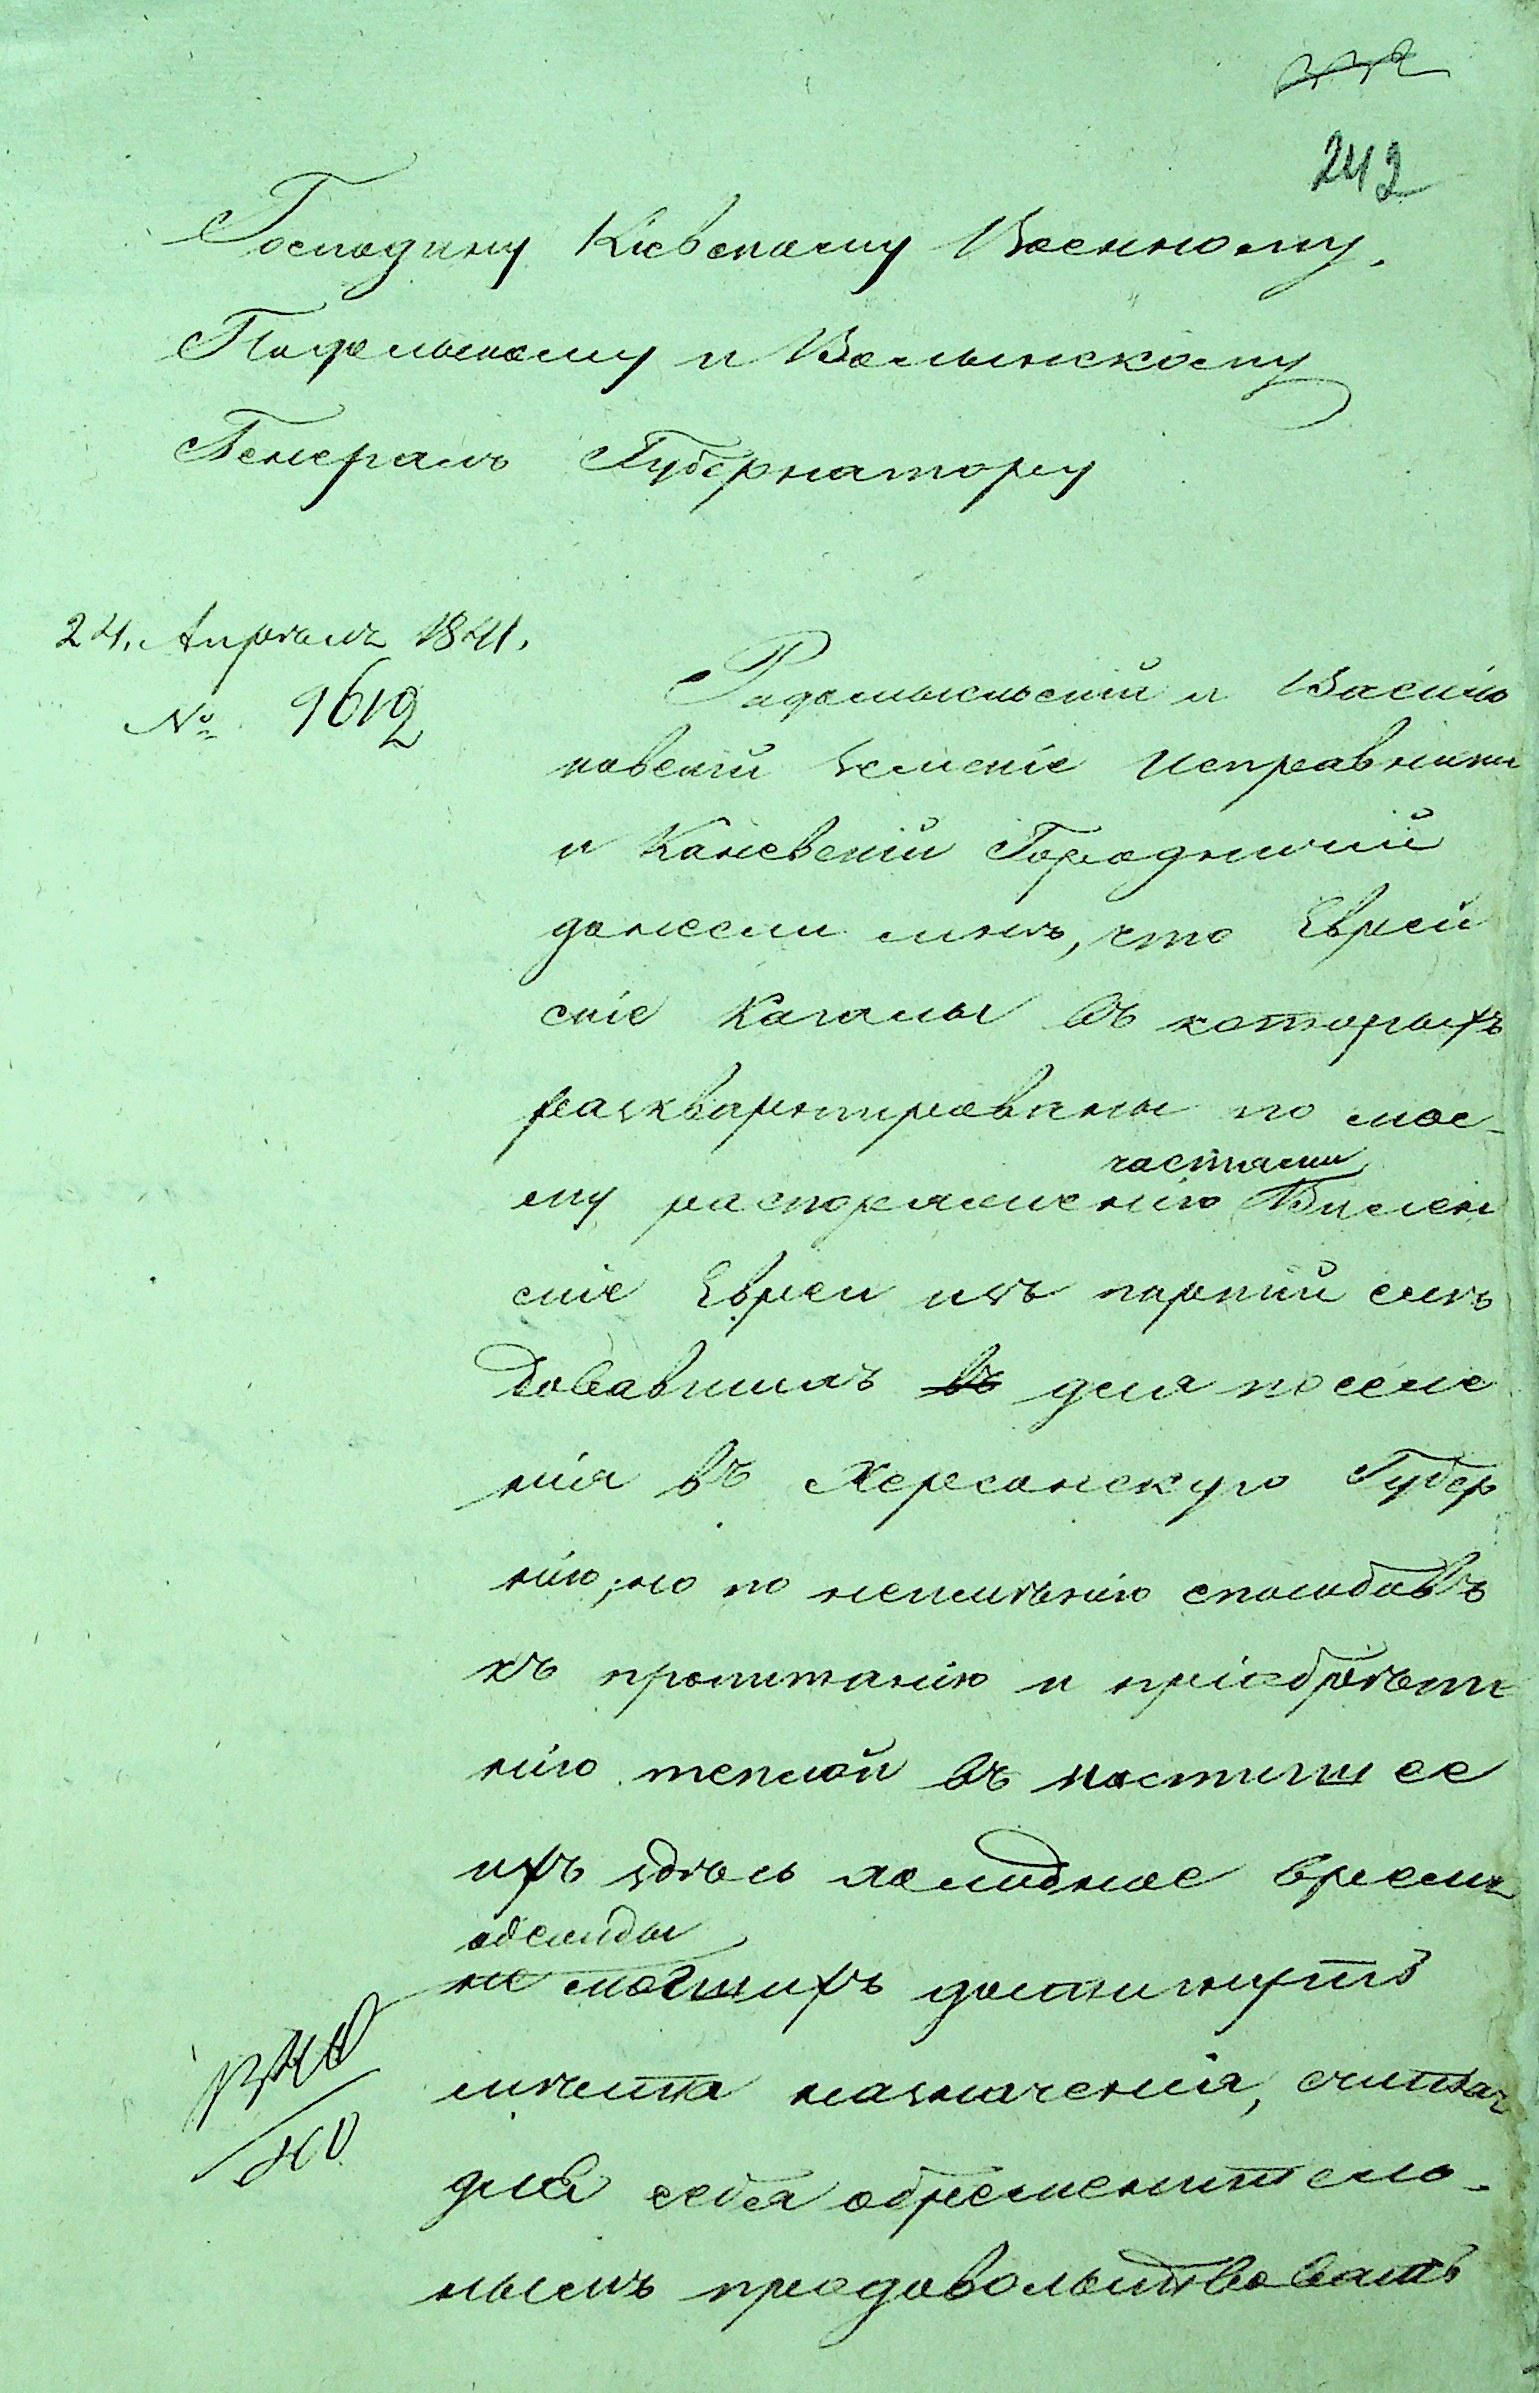 242
Господину Кіевскому Военному,
Подольскому и Волынскому
Генералъ Губернатору
24. Апрѣля 1841.
№ 9612
Радомысльскій и Василь
ковскій Земскіе Исправники
и Каневскій Городничій
донесли мнѣ, что Еврей
скіе Кагалы въ которыхъ
разквартированы по мое-
частями
му распоряженію Вилен
скіе Евреи изъ партій слѣ
довавшихъ въ для поселе
нія въ Херсонскую Губер
нію, но по неимѣнію способовъ
къ пропитанію и пріобрѣте
нію теплой въ настигшее
ихъ здѣсь холодное время
одежды
не могшихъ достигнуть
мѣста назначенія, считая
для себя обременитель-
нымъ продовольствовать